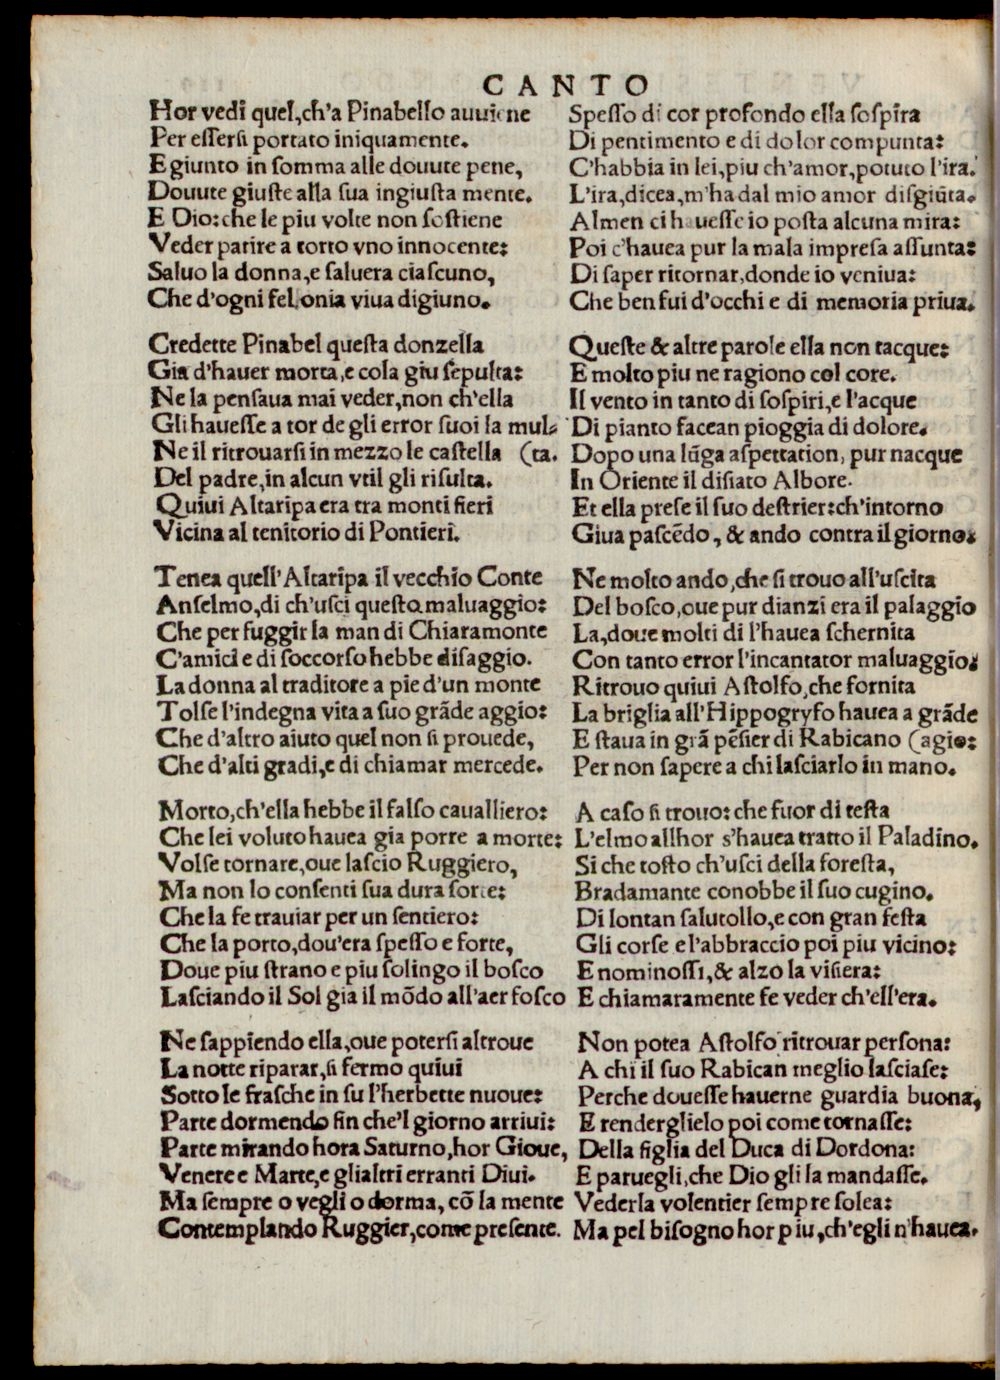 CANTO
Hor vedi quel, ch'a Pinabello auuiene
Per essersi portato iniquamente.
E giunto in somma alle douute pene,
Douute giuste alla sua ingiusta mente.
E Dio: che le piu volte non sostiene
Veder patire a torto vno innocente:
Saluo la donna, e saluera ciascuno,
Che d'ogni felonia viua digiuno.
Credette Pinabel questa donzella
Gia d'hauer morta, e cola giu sepulta:
Ne la pensaua mai veder, non ch'ella
Gli hauesse a tor de gli error suoi la mul-
Ne il ritrouarsi in mezzo le castella (ta.
Del padre, in alcun vtil gli risulta.
Quiui Altaripa era tra monti fieri
Vicina al tenitorio di Pontieri.
Tenea quell'Altaripa il vecchio Conte
Anselmo, di ch'usci questo maluaggio:
Che per fuggir la man di Chiaramonte
C'amici e di soccorso hebbe disaggio.
La donna al traditore a pie d'un monte
Tolse l'indegna vita a suo grāde aggio:
Che d'altro aiuto quel non si prouede,
Che d'alti gradi, e di chiamar mercede.
Morto, ch'ella hebbe il falso caualliero:
Che lei voluto hauea gia porre a morte:
Volse tornare, oue lascio Ruggiero,
Ma non lo consenti sua dura sorte:
Che la fe trauiar per un sentiero:
Che la porto, dou'era spesso e forte,
Doue piu strano e piu solingo il bosco
Lasciando il Sol gia il mōdo all'aer fosco
Ne sappiendo ella, oue potersi altroue
La notte riparar, si fermo quiui
Sotto le frasche in su l'herbette nuoue:
Parte dormendo fin che'l giorno arriui:
Parte mirando hora Saturno, hor Gioue,
Venere e Marte, e gli altri erranti Diui.
Ma sempre o vegli o dorma, cō la mente
Contemplando Ruggier, come presente.
Spesso di cor profondo ella sospira
Di pentimento e di dolor compunta:
C'habbia in lei, piu ch'amor, potuto l'ira.
L'ira, dicea, m'ha dal mio amor disgiūta.
Almen ci hauesse io posta alcuna mira:
Poi c'hauea pur la mala impresa assunta:
Di saper ritornar, donde io veniua:
Che ben fui d'occhi e di memoria priua.
Queste & altre parole ella non tacque:
E molto piu ne ragiono col core.
Il vento in tanto di sospiri, e l'acque
Di pianto facean pioggia di dolore.
Dopo una lūga aspettation, pur nacque
In Oriente il disiato Albore.
Et ella prese il suo destrier: ch'intorno
Giua pascēdo, & ando contra il giorno.
Ne molto ando, che si trouo all'uscita
Del bosco, oue pur dianzi era il palaggio
La, doue molti di l'hauea schernita
Con tanto error l'incantator maluaggio.
Ritrouo quiui Astolfo, che fornita
La briglia all'Hippogryfo hauea a grāde
E staua in grā pēsier di Rabicano (agio:
Per non sapere a chi lasciarlo in mano.
A caso si trouo: che fuor di testa
L'elmo allhor s'hauea tratto il Paladino.
Si che tosto ch'usci della foresta,
Bradamante conobbe il suo cugino.
Di lontan salutollo, e con gran festa
Gli corse e l'abbraccio poi piu vicino:
E nominossi, & alzo la visiera:
E chiamaramente fe veder ch'ell'era.
Non potea Astolfo ritrouar persona:
A chi il suo Rabican meglio lasciase:
Perche douesse hauerne guardia buona,
E renderglielo poi come tornasse:
Della figlia del Duca di Dordona:
E paruegli, che Dio gli la mandasse.
Vederla volentier sempre solea:
Ma pel bisogno hor piu, ch'egli n'hauea.